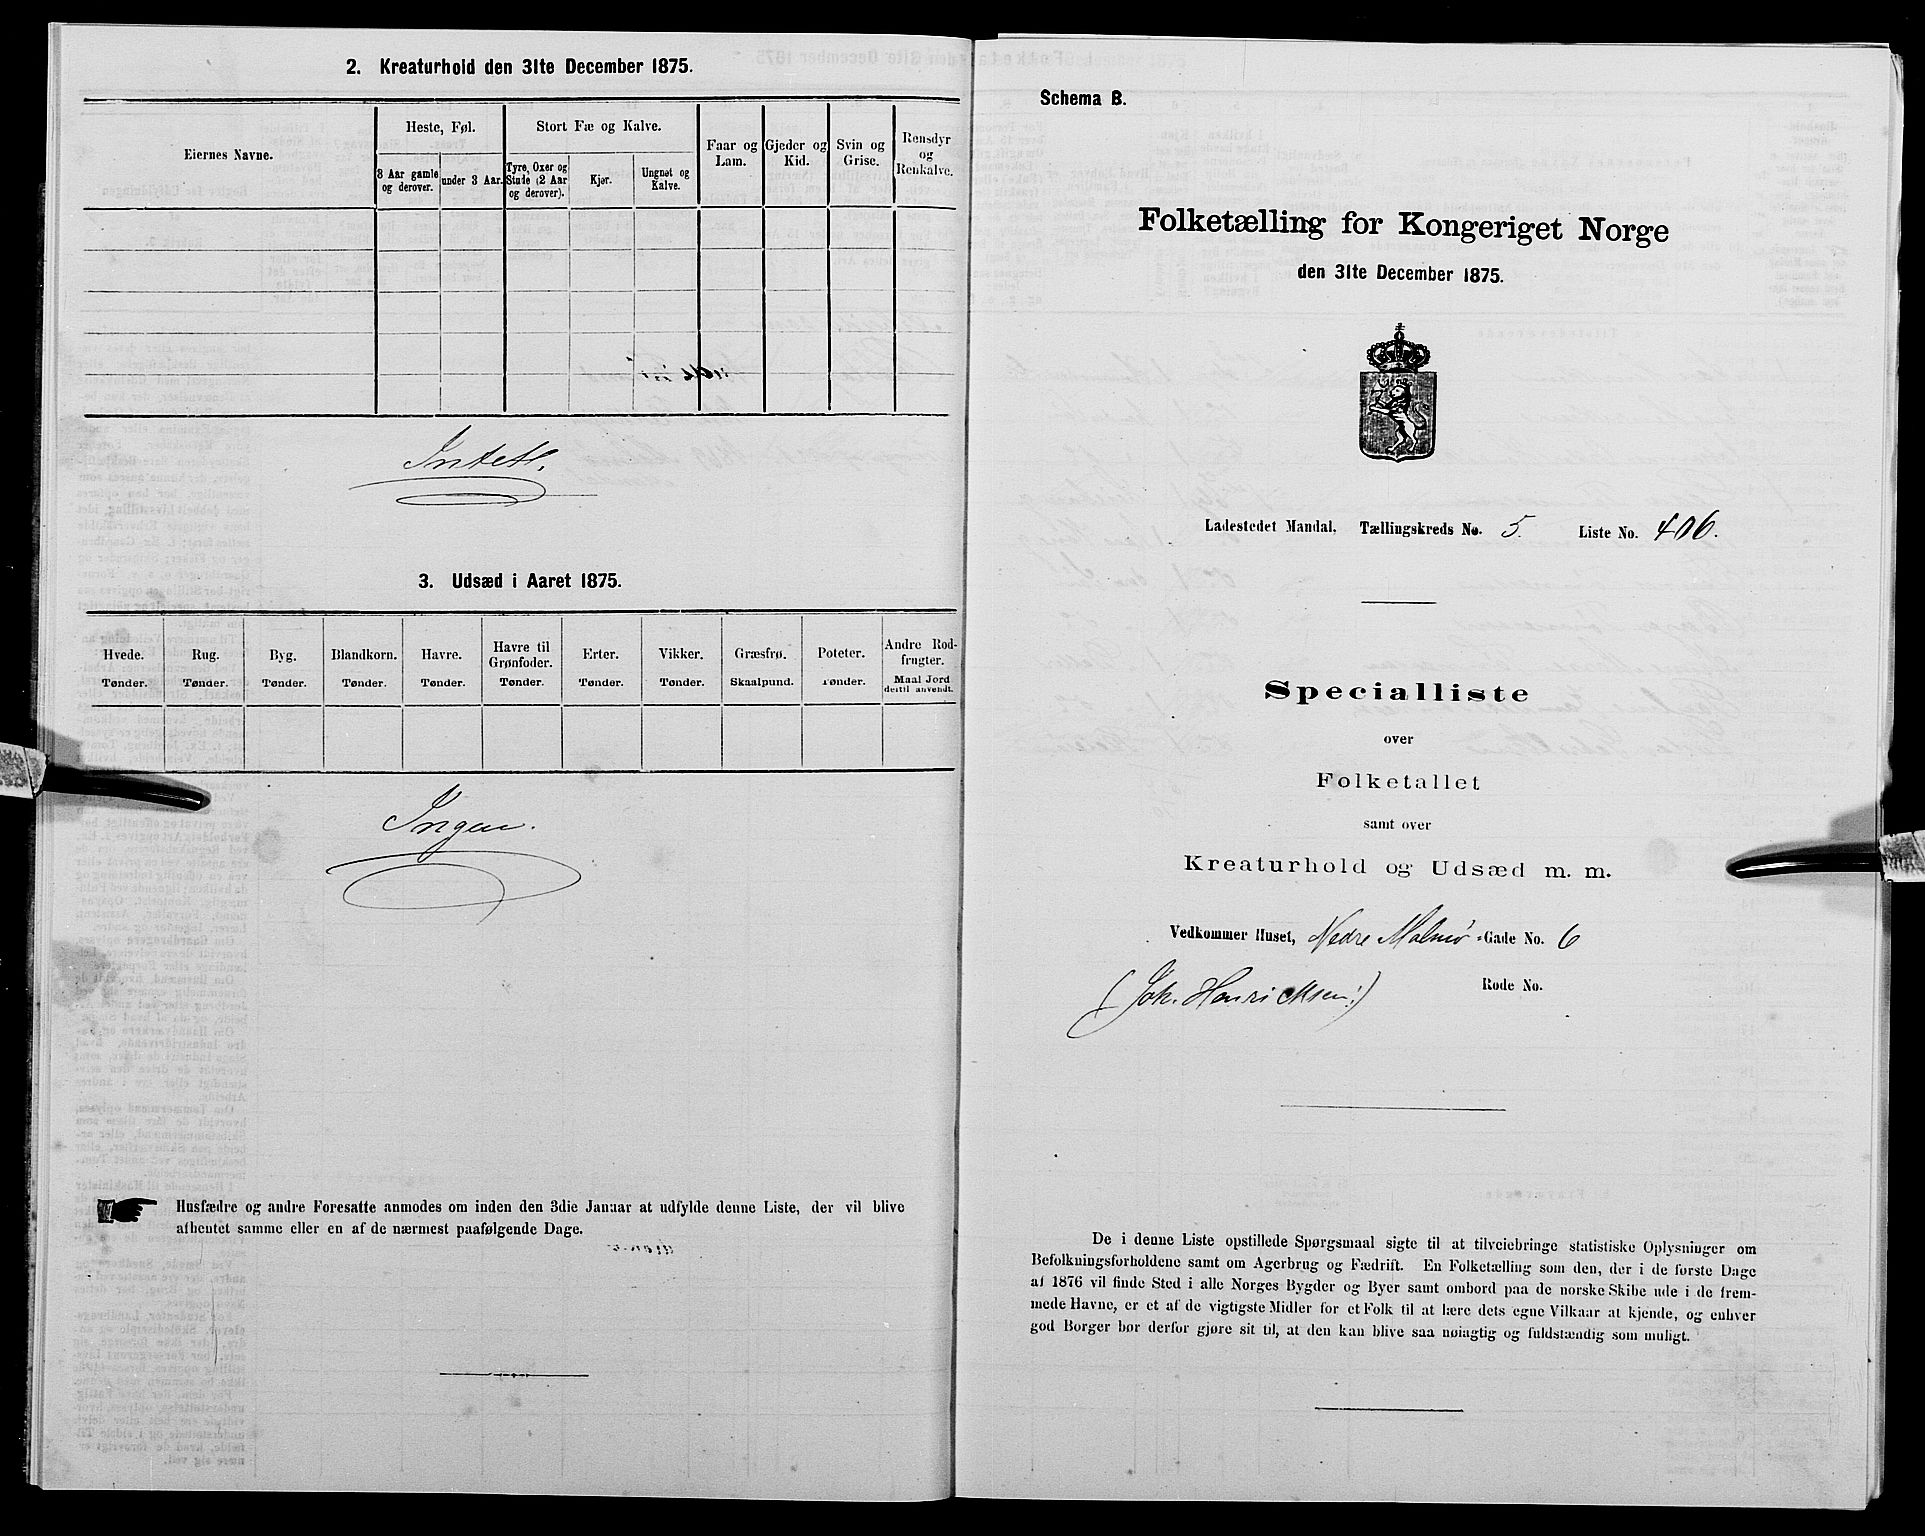 2. Kreaturhold den 31te December 1875.
Eiernes Navne.
Heste, Føl.
3 Aar gamle og derover.
under 3 Aar.
Stort Fæ og Kalve.
Tyre, Oxer og Stude (2 Aar og derover).
Kjør.
Ungnøt og Kalve.
Faar og Lam.
Gjeder og Kid.
Svin og Grise.
Rensdyr og Renkalve.
Intet.
3. Udsæd i Aaret 1875.
Hvede. Tønder.
Rug. Tønder.
Byg. Tønder.
Blandkorn. Tønder.
Havre. Tønder.
Havre til Grønfoder. Tønder.
Erter. Tønder.
Vikker. Tønder.
Græsfrø. Skaalpund.
Poteter. Tønder.
Andre Rodfrugter. Maal Jord dertil anvendt.
Ingen.
Husfædre og andre Foresatte anmodes om inden den 3die Januar at udfylde denne Liste, der vil blive
afhentet samme eller en af de nærmest paafølgende Dage.
Schema B.
Folketælling for Kongeriget Norge
den 31te December 1875.
Ladestedet Mandal. Tællingskreds No. 5. Liste No. 406.
Specialliste
over
Folketallet
samt over
Kreaturhold og Udsæd m. m.
Vedkommer Huset, Nedre Malmø-Gade No. 6
(Joh. Henricksen.)
Rode No.
De i denne Liste opstillede Spørgsmaal sigte til at tilveiebringe statistiske Oplysninger om
Befolkningsforholdene samt om Agerbrug og Fædrift. En Folketælling som den, der i de første Dage
af 1876 vil finde Sted i alle Norges Bygder og Byer samt ombord paa de norske Skibe ude i de frem-
mede Havne, er et af de vigtigste Midler for et Folk til at lære dets egne Vilkaar at kjende, og enhver
god Borger bør derfor gjøre sit til, at den kan blive saa nøiagtig og fuldstændig som muligt.